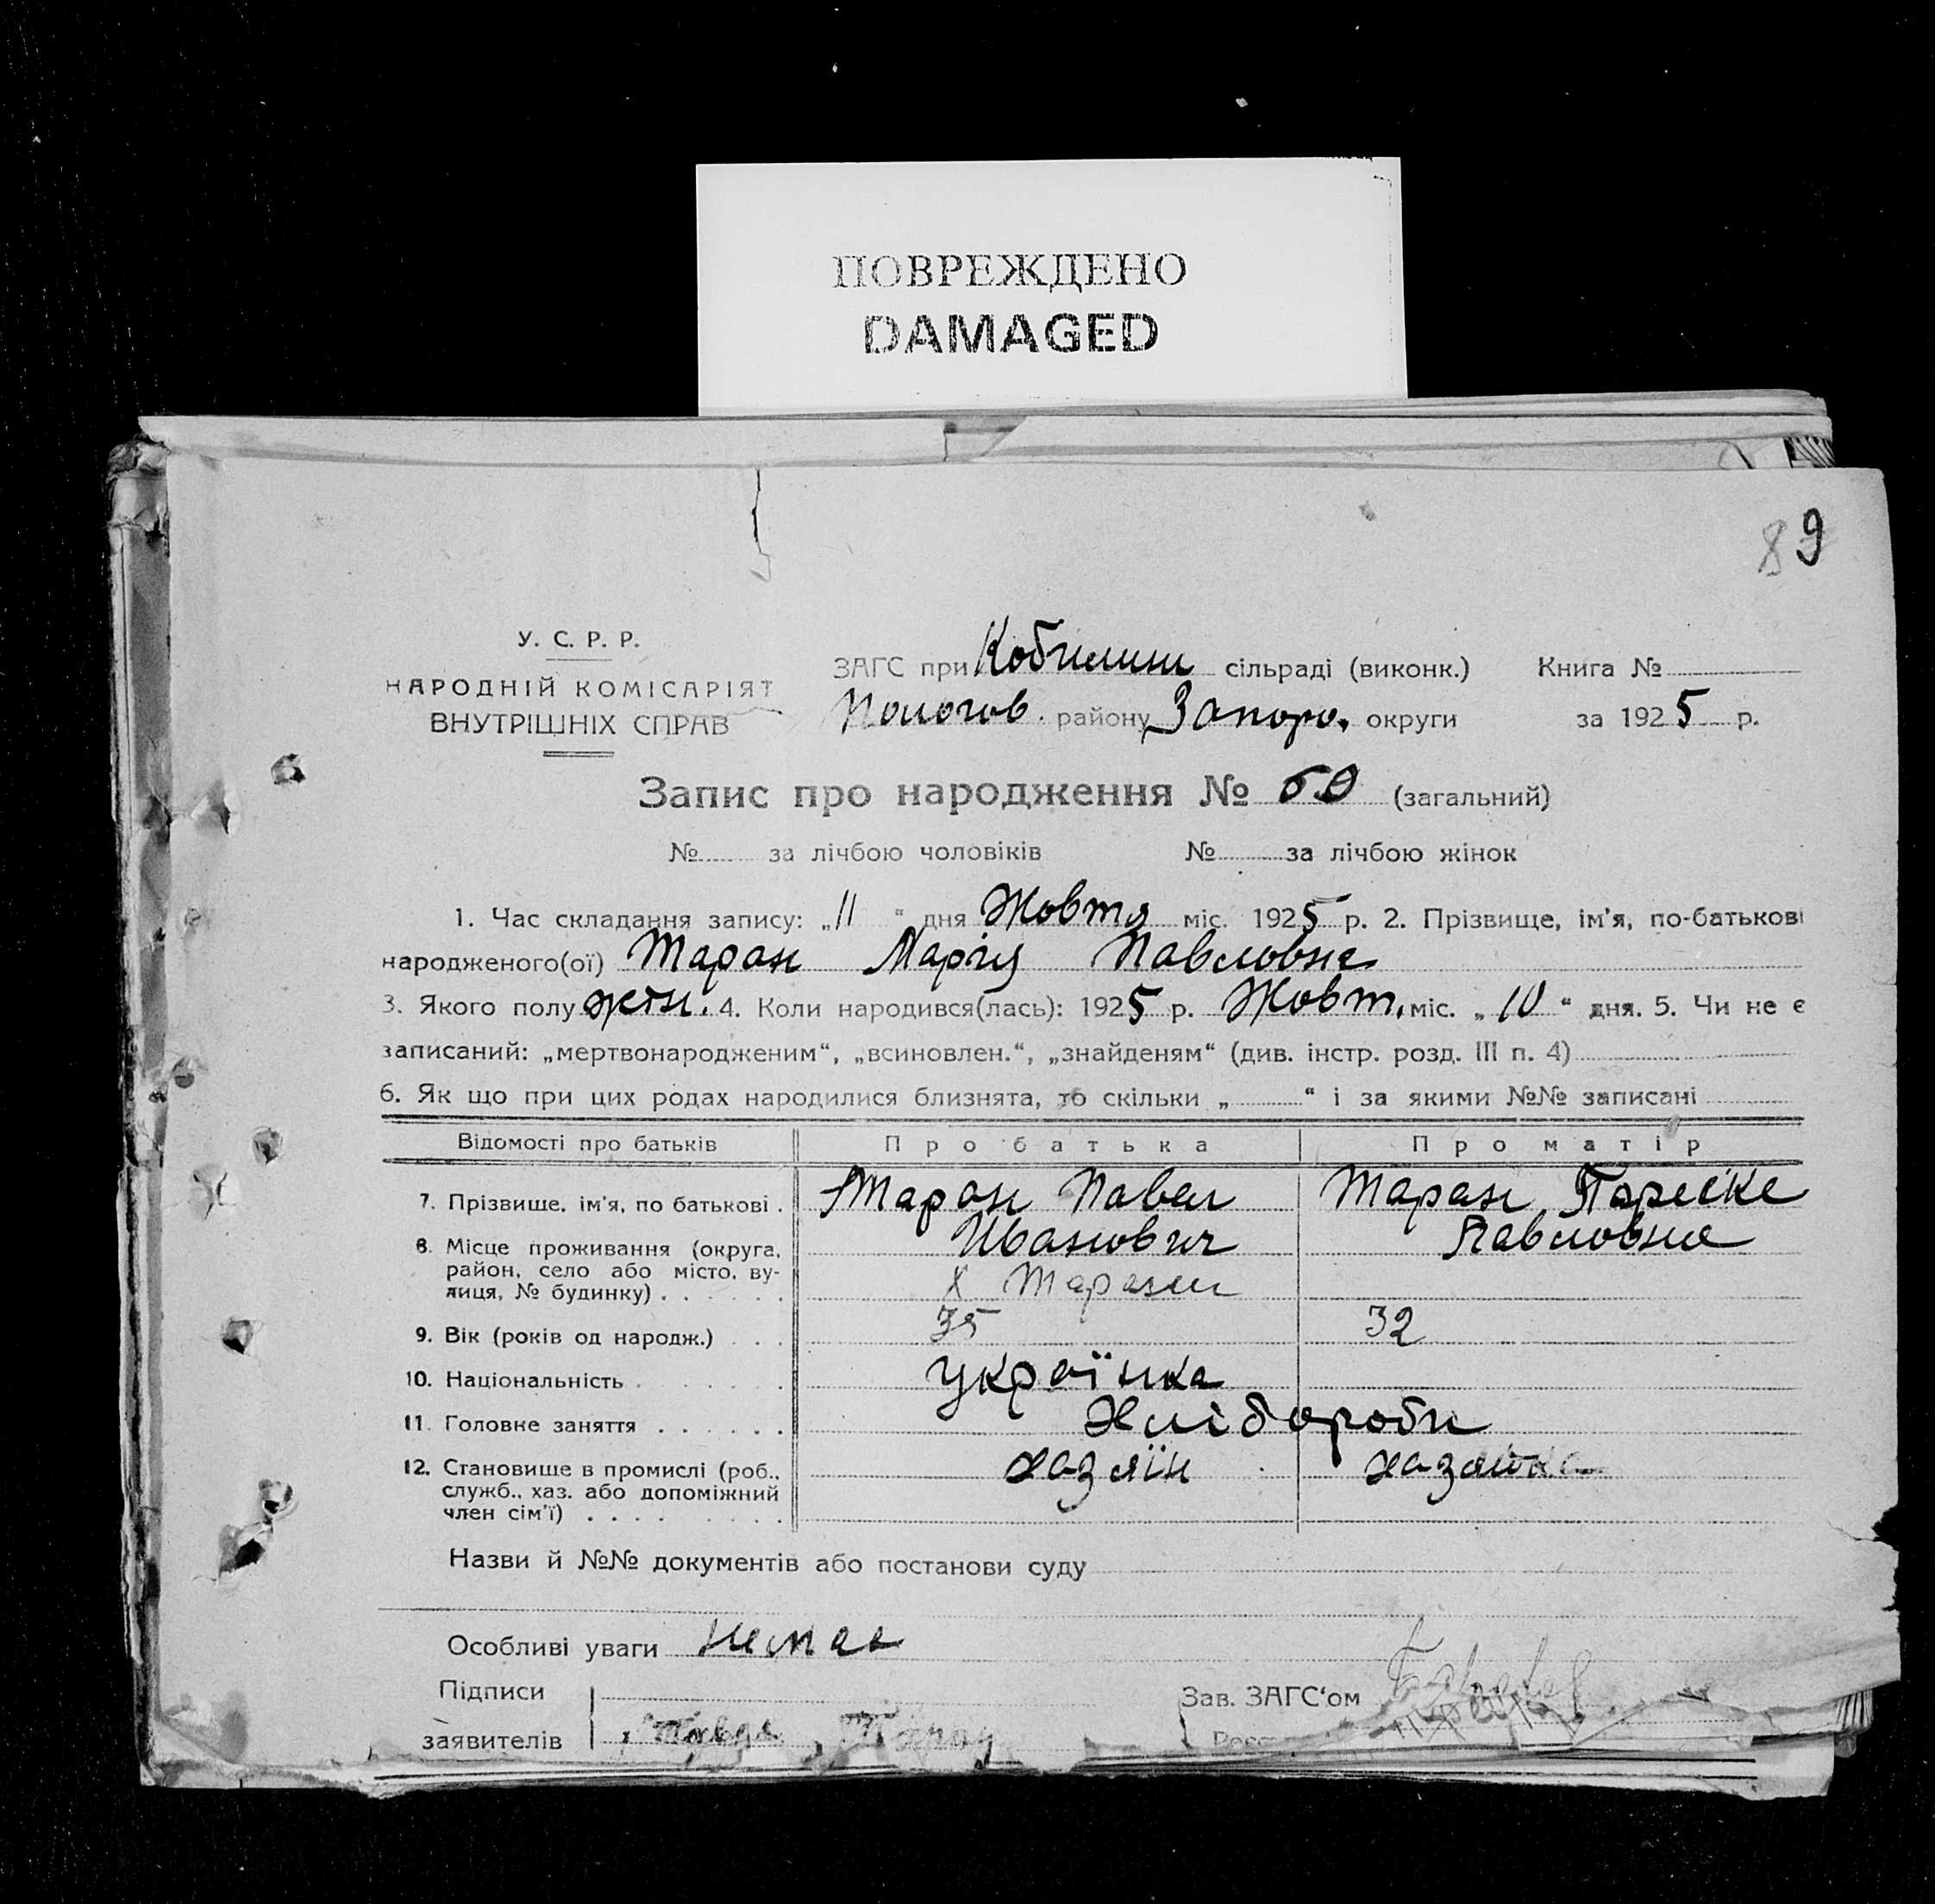 ПОВРЕЖДЕНО
DAMAGED
89
У. С. Р. Р.
НАРОДНІЙ КОМІСАРІЯТ
ВНУТРІШНІХ СПРАВ
ЗАГС при Кобилиш сільраді (виконк.) Книга №
Пологов. району Запоро. округи за 1925 р.
Запис про народження № 69 (загальний)
№ за лічбою чоловіків № за лічбою жінок
1. Час складання запису: „11“ дня Жовтя міс. 1925 р. 2. Прізвище, ім'я, по-батькові
народженого(ої) Таран Марія Павловна
3. Якого полу жін. 4. Коли народився(лась): 1925 р. Жовт. міс. „10“ дня. 5. Чи не є
записаний: „мертвонародженим“, „всиновлен.“, „знайденям“ (див. інстр. розд. III п. 4)
6. Як що при цих родах народилися близнята, то скільки „ “ і за якими №№ записані
Відомості про батьків Про батька Про матір
7. Прізвище, ім'я, по батькові . Таран Павел Таран Параска
Иванович Павловна
8. Місце проживання (округа,
район, село або місто, ву-
лиця, № будинку) . . . . . . х Тарани
9. Вік (років од народж.) . . . 35 32
10. Національність . . . . . українка
11. Головне заняття . . . . . . Хлібороби
12. Становище в промислі (роб., хазяїн хазяйка
служб., хаз. або допоміжний
член сім'ї) . . . . . . . .
Назви й №№ документів або постанови суду
Особливі уваги немає
Підписи Зав. ЗАГС‘ом
заявителів Таран